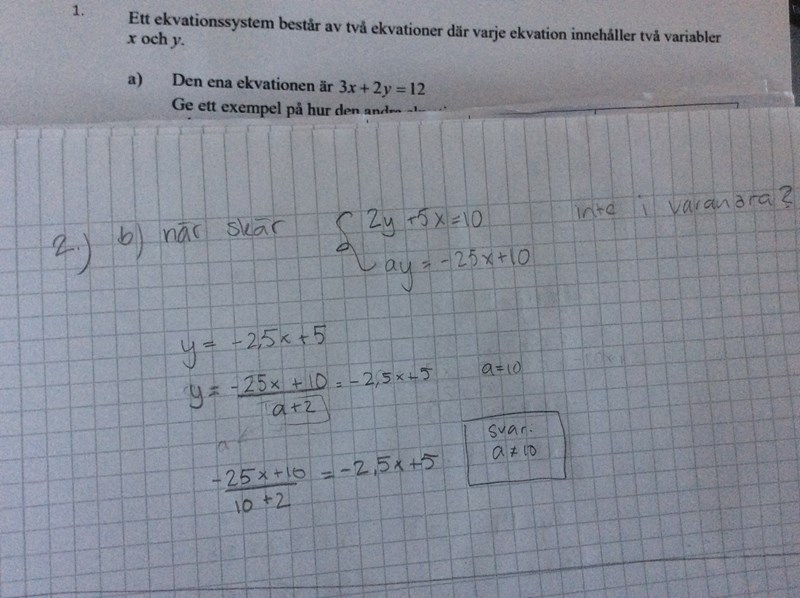 1. Ett ekvationssystem består av två ekvationer där varje ekvation innehåller två variabler
x och y.
a) Den ena ekvationen är 3x + 2y = 12
Ge ett exempel på hur den andra
2.) b) när skär { 2y + 5x = 10 inte i varandra?
ay = -25x + 10
y = -2,5x + 5
y = -25x + 10 / a + 2 = -2,5x + 5 a = 10
-25x + 10 / 10 + 2 = -2,5x + 5
svar.
a ≠ 10